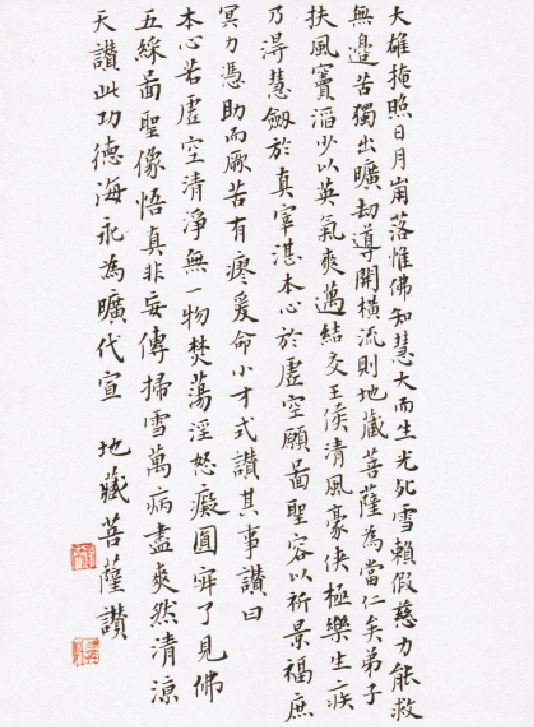 大雄掩照日月崩落惟佛知慧大而生光死雪賴假慈力能救
無邊苦獨出曠劫導開橫流則地藏菩薩為當仁矣弟子
扶風竇滔少以英氣爽邁結交王侯清風豪俠極樂生疾
乃淂慧劔於真宰湛本心於虛空願啚聖容以祈景福庶
冥力憑助而厥苦有瘳爰命小才式讚其事讚曰
本心若虛空清淨無一物焚蕩淫怒癡圓寂了見佛
五綵啚聖像悟真非妄傳掃雪萬病盡爽然清涼
天讚此功德海永為曠代宣 地藏菩薩讚